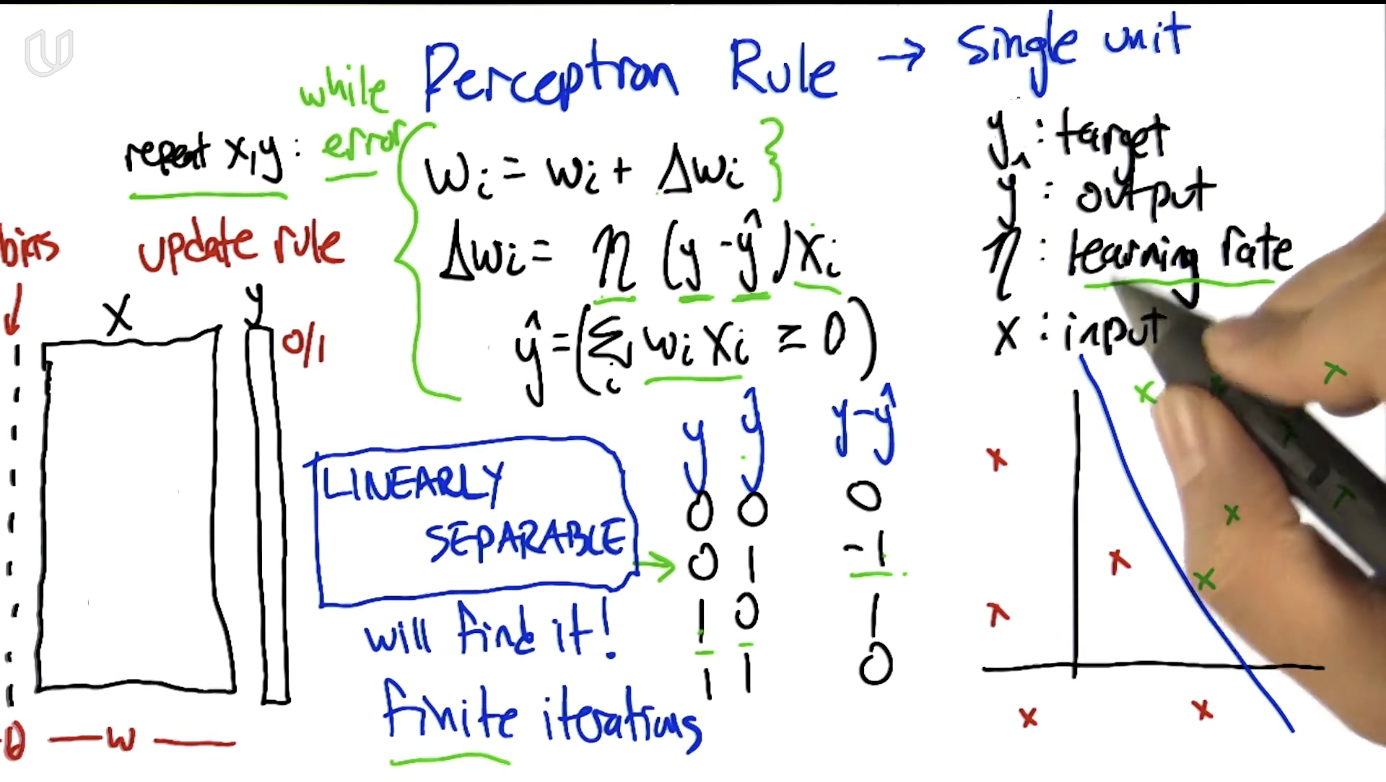 Perceptron Rule → single unit
while
repeat x,y: error
wᵢ = wᵢ + Δwᵢ
Δwᵢ = η (y - ŷ) xᵢ
ŷ = (Σᵢ wᵢ xᵢ ≥ 0)
y : target
ŷ : output
η : learning rate
x : input
bias
update rule
X
y
0/1
θ — w —
LINEARLY
SEPARABLE
will find it!
finite iterations
y ŷ y-ŷ
0 0 0
0 1 -1
1 0 1
1 1 0